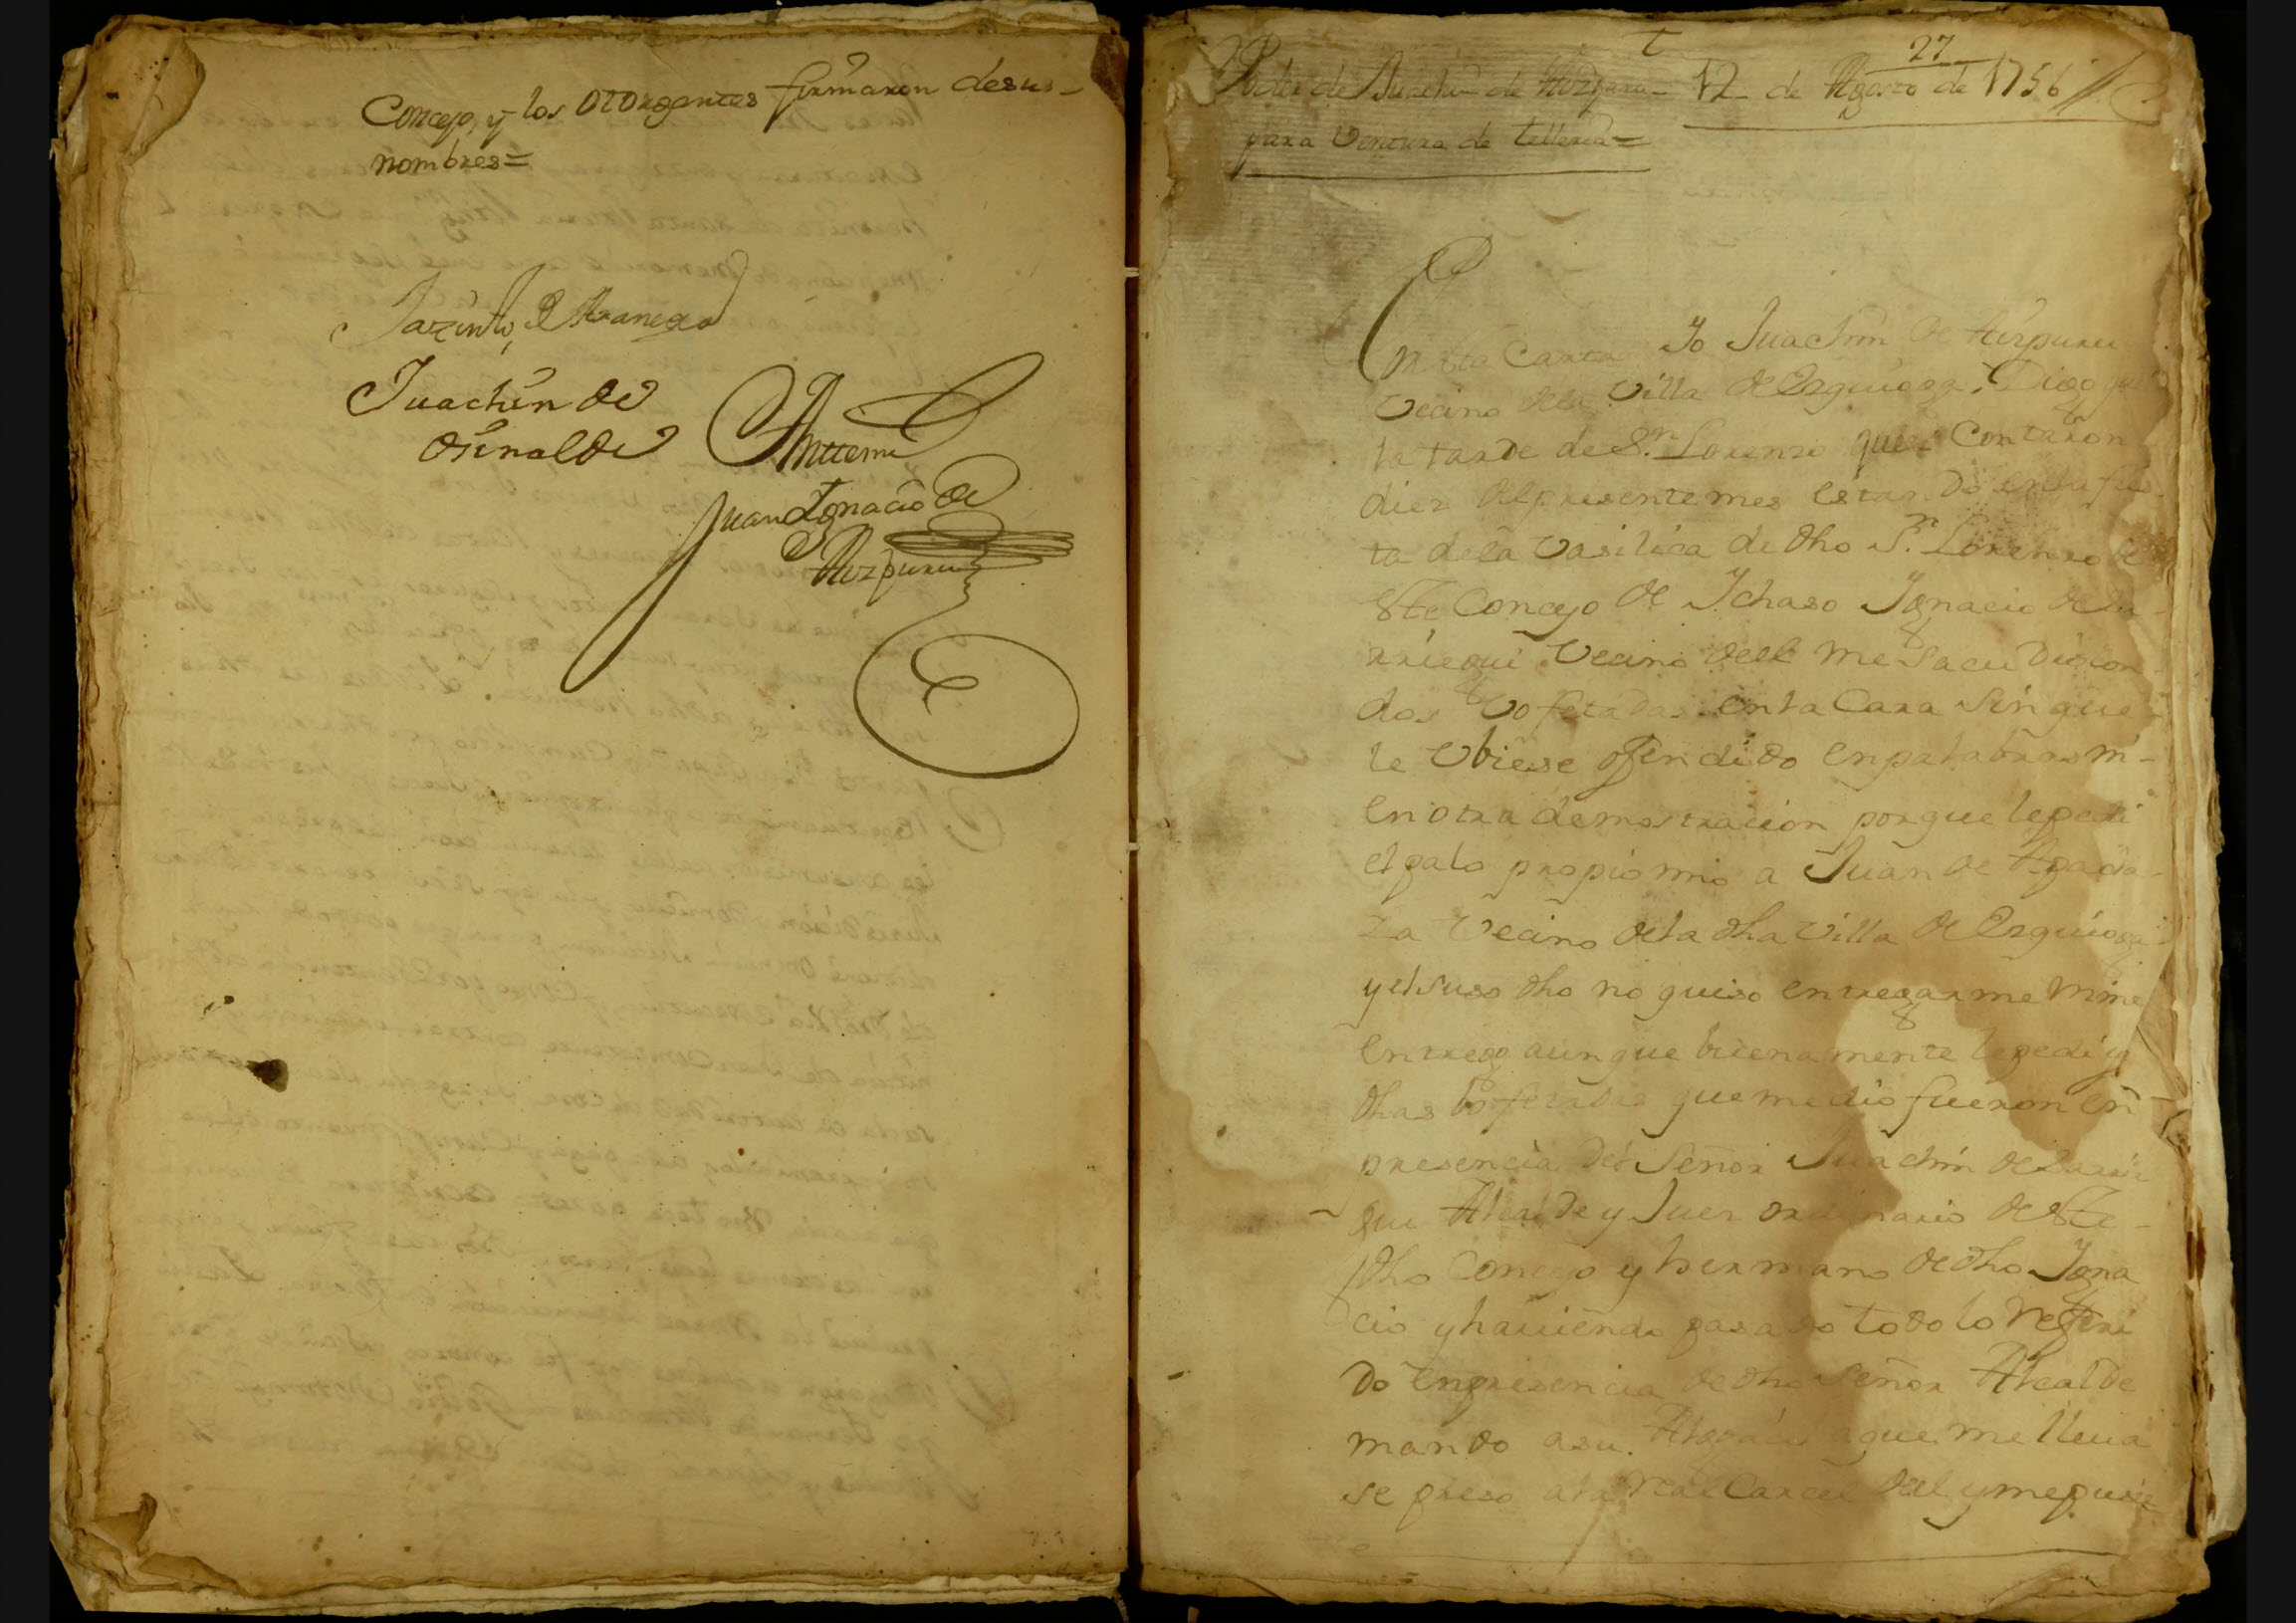 Concejo, y los otorgantes firmaron desus-
nombres=
Juachin de
Osinalde
Antemi
Juan Ignacio de
Aizpuru
27
Poder de Juachin de Aizpuru-
12 de Agosto de 1756
para Ventura de Telleria=
En esta Carta Yo Juachin de Aizpuru
Vecino dela Villa de Ezquioga, Digo que
la tarde de Sn. Lorenzo que se Contaron
diez del presente mes estando en la fies
ta dela Vasilica de dho Sn. Lorenzo de
este Concejo de Ichaso Ignacio de La-
rriegui Vecino deel me sacudio con
dos Vofetadas en la Cara sin que
le Vbiese ofendido en palabras ni-
en otra demostracion porque le pedi
el palo propio mio a Juan de
Vecino de la dha Villa de Ezquioga
y el suso dho no quiso entregarme ni me
entrego aunque buena mente le pedi y
dhas Vofetadas que me dio fueron en
presencia del Señor Juachin de Larrie
gui Alcalde y Juez ordinario de este-
dho Concejo y hermano de dho Igna
cio y hauiendo pasado todo lo referi
do en presencia de dho Señor Alcalde
mando a su que me lleua
se preso a la real Carcel deel y me pusie